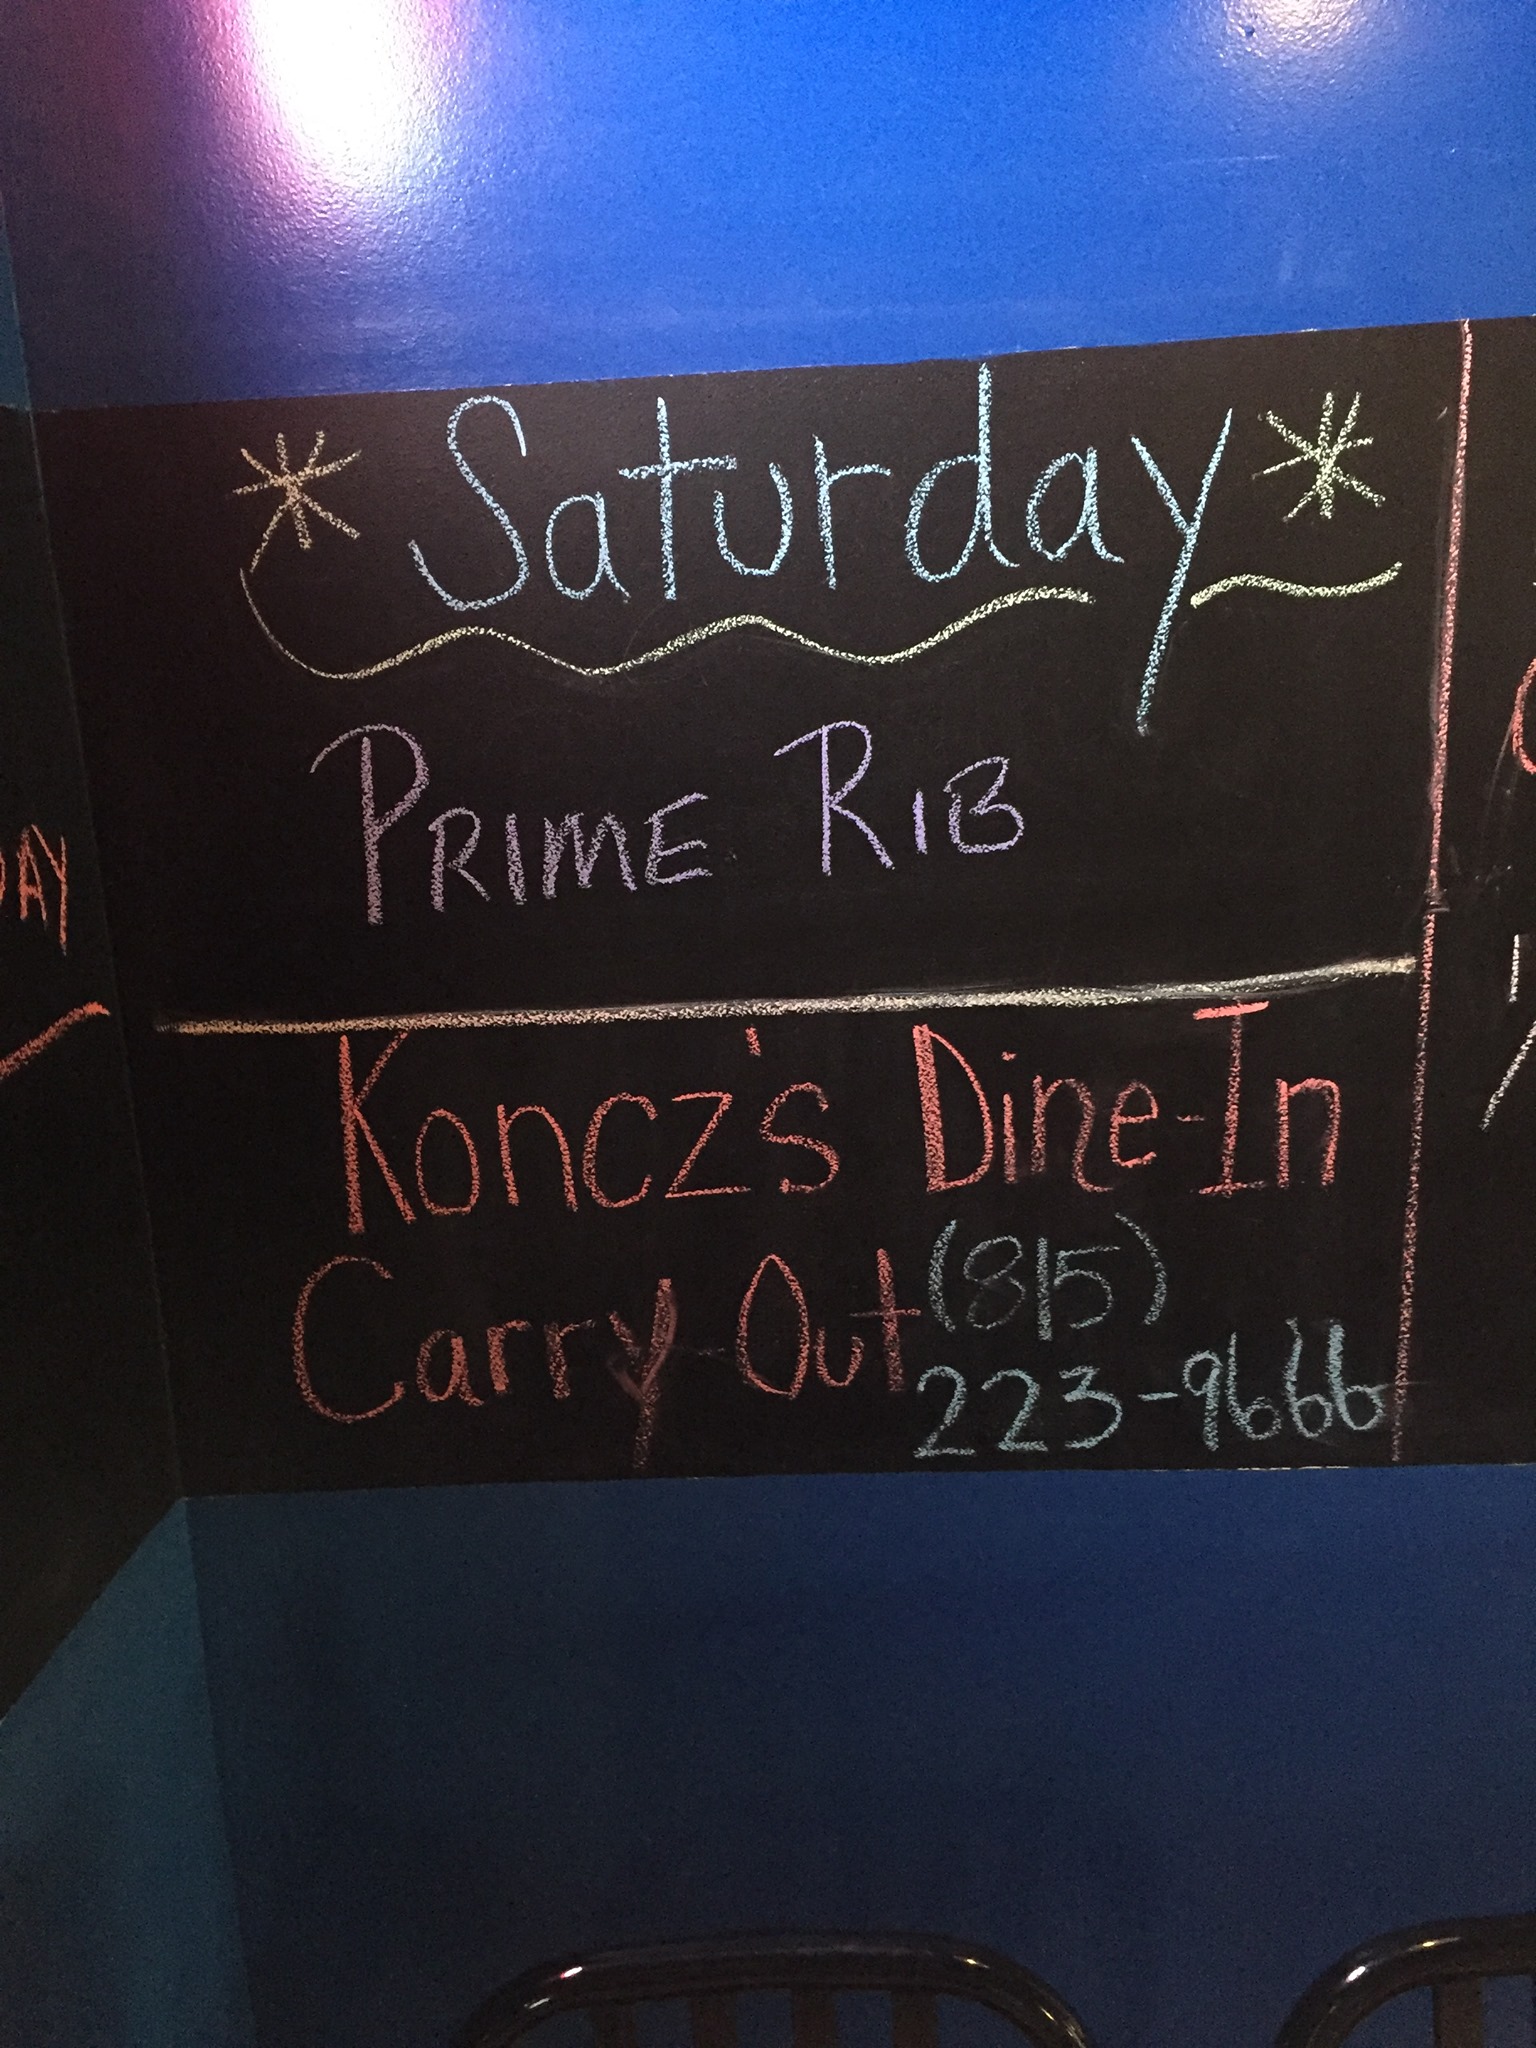 * Saturday *
PRIME RIB
Koncz's Dine-In
Carry Out (815)
223-9666
DAY